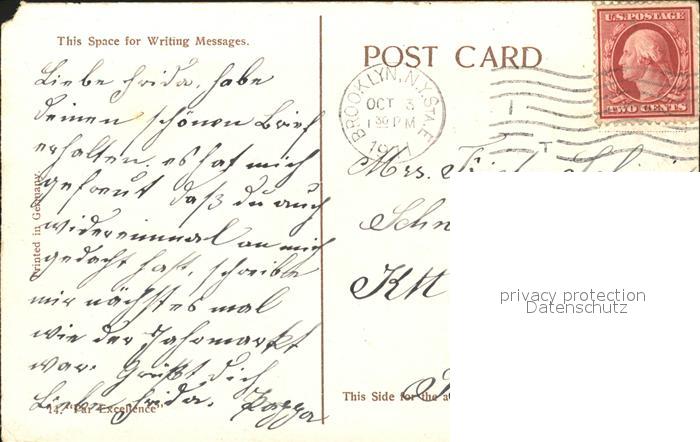 This Space for Writing Messages.
Liebe Frida, habe
deinen schönen Brief
erhalten. es hat mich
gefreut daß du auch
widereinmal an mich
gedacht hast, schreibe
mir nächstes mal
wie der Jahrmarkt
war. Grüßt dich
Liebe Frida.
Printed in Germany.
147 "Par Excellence"
POST CARD
BROOKLYN, N.Y. STA.
OCT 3
1 30 PM
U.S. POSTAGE
TWO CENTS
Mrs.
Schn
This Side for the a
privacy protection
Datenschutz